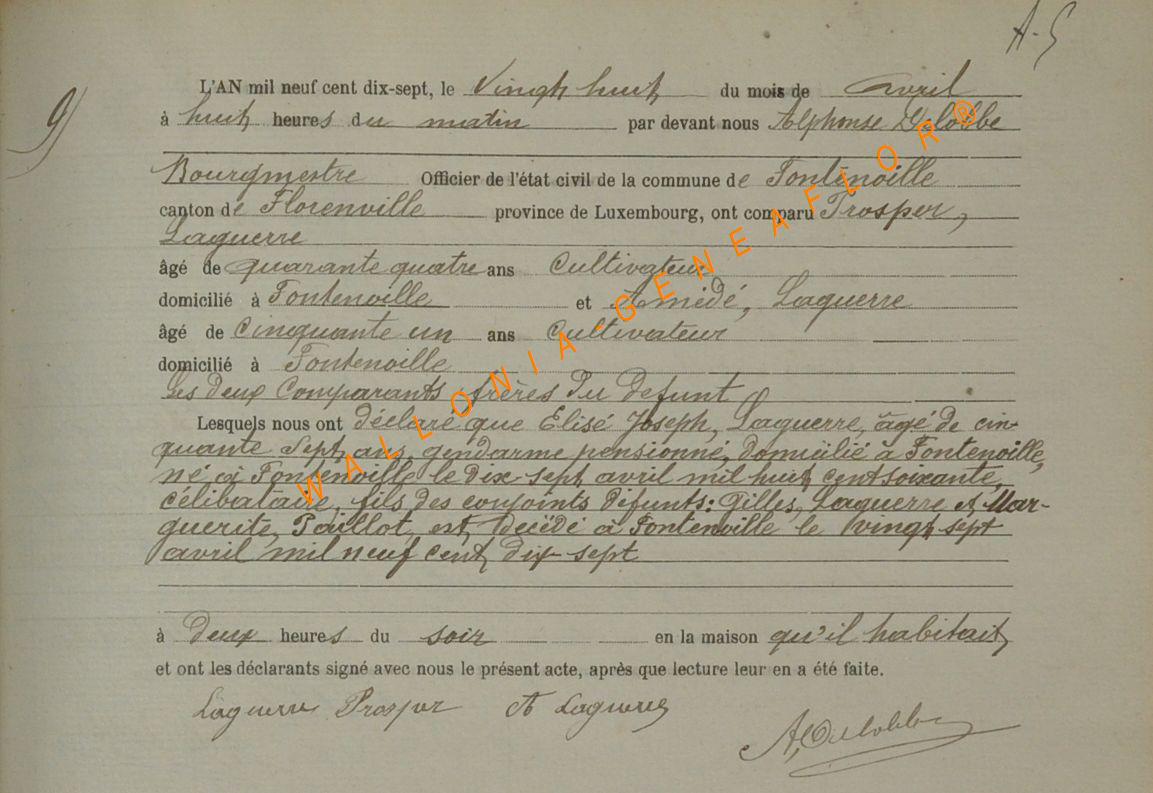 A-S
9)
L'AN mil neuf cent dix-sept, le Vingt huit du mois de avril
à huit heures du matin par devant nous Alphonse Dulobbe
Bourgmestre Officier de l'état civil de la commune de Fontenoille
canton de Florenville province de Luxembourg, ont comparu Prosper,
Laguerre
âgé de quarante quatre ans Cultivateur
domicilié à Fontenoille et Amédé, Laguerre
âgé de Cinquante un ans Cultivateur
domicilié à Fontenoille
Les deux Comparants frères Du defunt
Lesquels nous ont déclaré que Elisé Joseph, Laguerre, âgé de cin-
quante Sept ans, gendarme pensionné, domicilié à Fontenoille,
né à Fontenoille le dix-sept avril mil huit cent soixante,
célibataire, fils des conjoints défunts: Gilles, Laguerre et Mar-
guerite, Paillot, est décédé à Fontenoille le vingt sept
avril mil neuf cent dix-sept
à Deux heures du soir en la maison qu'il habitait
et ont les déclarants signé avec nous le présent acte, après que lecture leur en a été faite.
Laguerre Prosper A Laguerre
A, Dulobbe
WALLONIA-GENEAFLOR®